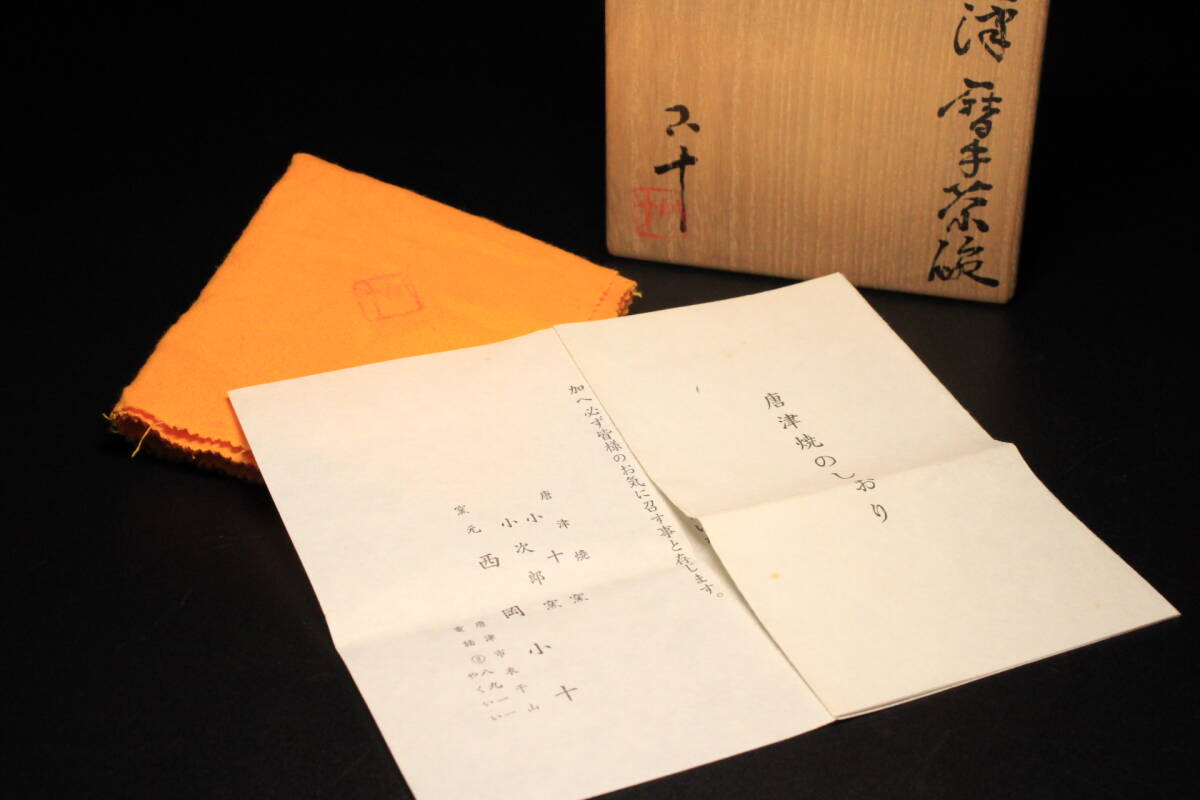 津暦手茶碗
小十
唐津焼のしおり
加へ必ず皆様のお気に召す事と存します。
唐津焼
小十窯
小次郎窯
窯元 西岡小十
唐津市衣干山
電話③八九一一
やくいい